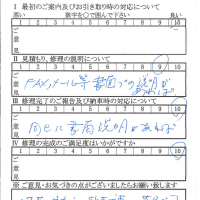 I 最初のご案内及びお引き取り時の対応について
悪い 数字を○で囲んで下さい 良い
1 2 3 4 5 6 7 8 9 10
ご意見
II 見積もり、修理の説明について
1 2 3 4 5 6 7 8 9 10
ご意見 FAX、メール等書面での説明があれば
III 修理完了のご報告及び納車時の対応について
1 2 3 4 5 6 7 8 9 10
ご意見 同じく書面説明があれば
IV 修理の完成のご満足度はいかがですか
1 2 3 4 5 6 7 8 9 10
ご意見
※ご意見・お気づきの点がございましたらお願い致します